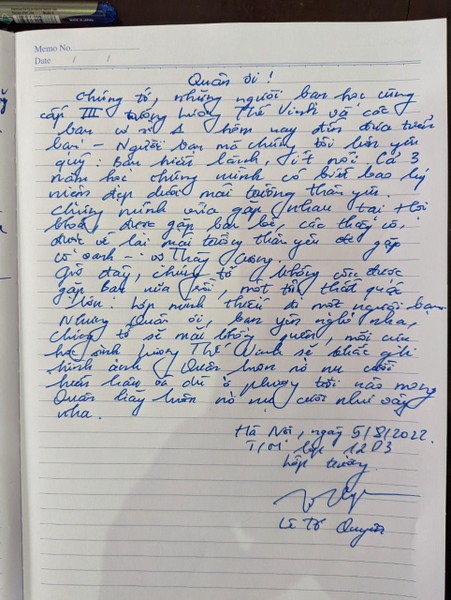 Memo No.
Date / /
Quân ơi!
Chúng tớ, những người bạn học cùng
cấp III trường Lương Thế Vinh và các
bạn cơ sở A hôm nay đến đưa tiễn
bạn – Người bạn mà chúng tôi luôn yêu
quý: Bạn hiền lành, ít nói. Cả 3
năm học chúng mình có biết bao kỷ
niệm đẹp dưới mái trường thân yêu.
Chúng mình vừa gặp nhau tại Hội
khoá, được gặp bạn bè, các thầy cô,
được về lại mái trường thân yêu để gặp
cô Oanh – Thầy Cương.
Giờ đây, chúng tớ không còn được
gặp bạn nữa rồi, một tổn thất quá
lớn: lớp mình thiếu đi một người bạn.
Nhưng Quân ơi, bạn yên nghỉ nha,
chúng tớ sẽ mãi không quên, mỗi cựu
học sinh Lương Thế Vinh sẽ khắc ghi
hình ảnh Quân luôn nở nụ cười
hiền hậu và dù ở phương trời nào mong
Quân hãy luôn nở nụ cười như vậy
nha.
Hà Nội, ngày 5/8/2022.
T/M lớp 12D3
Lớp trưởng
Lê Tố Quyên